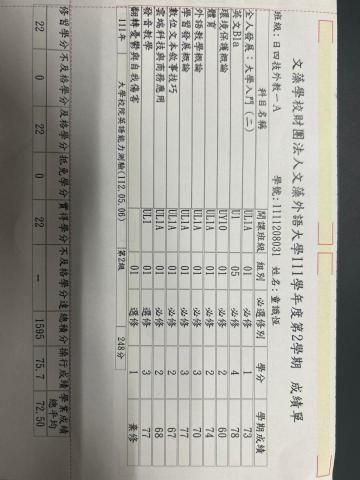 文藻學校財團法人文藻外語大學111學年度第2學期 成績單
班級：日四技外教一A 學號：1111208031 姓名：童
科目名稱 開課班級 組別 必選修別 學分 學期成績
全人發展：大學入門（二） UL1A 01 必修 1 73
英文B1a U1 05 必修 4 78
環境保護概論 UY10 01 必修 2 60
體育 UL1A 01 必修 2 74
外語教學概論 UL1A 01 必修 3 70
學習發展概論 UL1A 01 必修 3 77
數位文本敘事技巧 UL1A 01 必修 2 67
雲端科技與商務應用 UL1A 01 必修 2 68
發音教學 UL1 01 選修 3 77
翻轉憂鬱與自我傷害 UL1 01 選修 1 棄修
111年 大學校院英語能力測驗(112.05.06) 第2級 248分
修習學分 不及格學分 及格學分 抵免學分 實得學分 不及格學分達 總積分 操行成績 學業成績總平均
22 0 22 0 22 － 1595 75.7 72.50